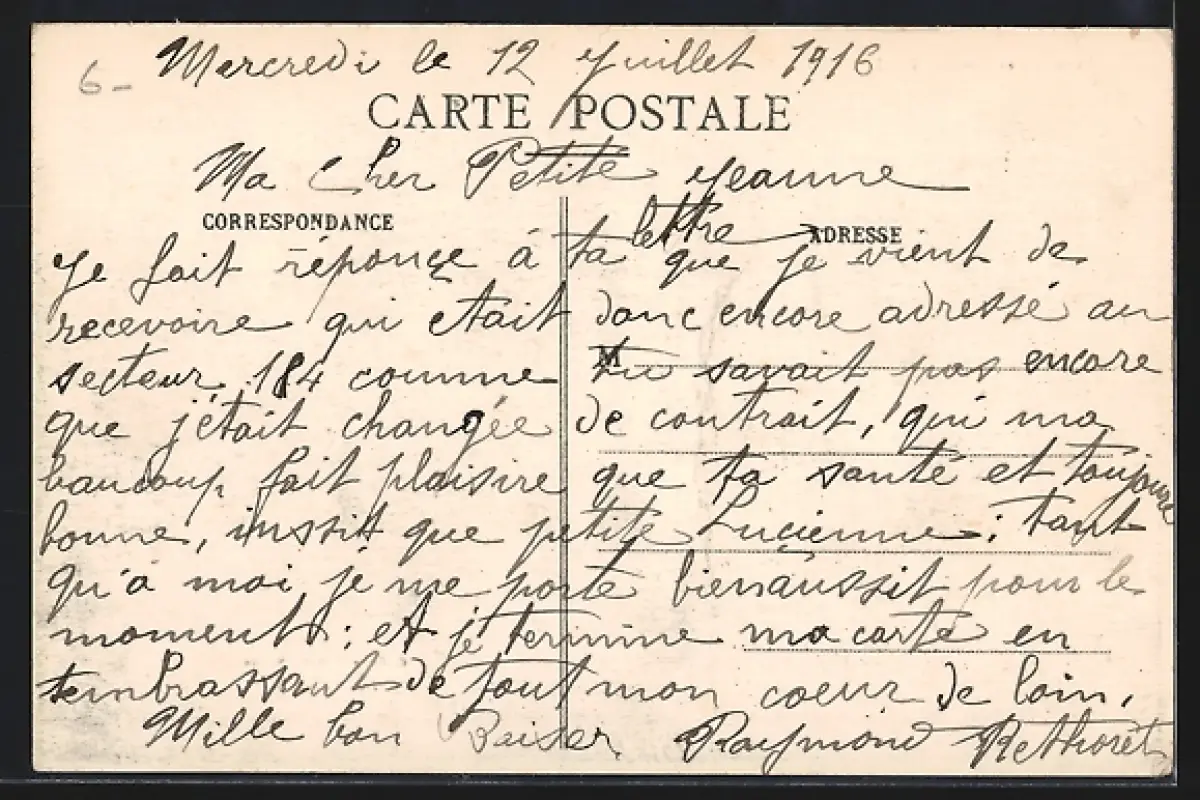 6- Mercredi le 12 Juillet 1916
CARTE POSTALE
Ma Cher Petite Jeanne
CORRESPONDANCE
ADRESSE
Je fait réponçe à ta lettre que je vient de
recevoire qui était donc encore adressé au
M
secteur 184 comme tu savait pas encore
que j'était changée de contrait, qui ma
baucoup fait plaisire que ta santé et toujoure
bonne, inssit que petite Luçienne; tant
qu'à moi je me porte bienaussit pour le
moment; et je termine ma carte en
tembrassant de tout mon coeur de loin.
Mille bon Baiser Raymond Rethoret